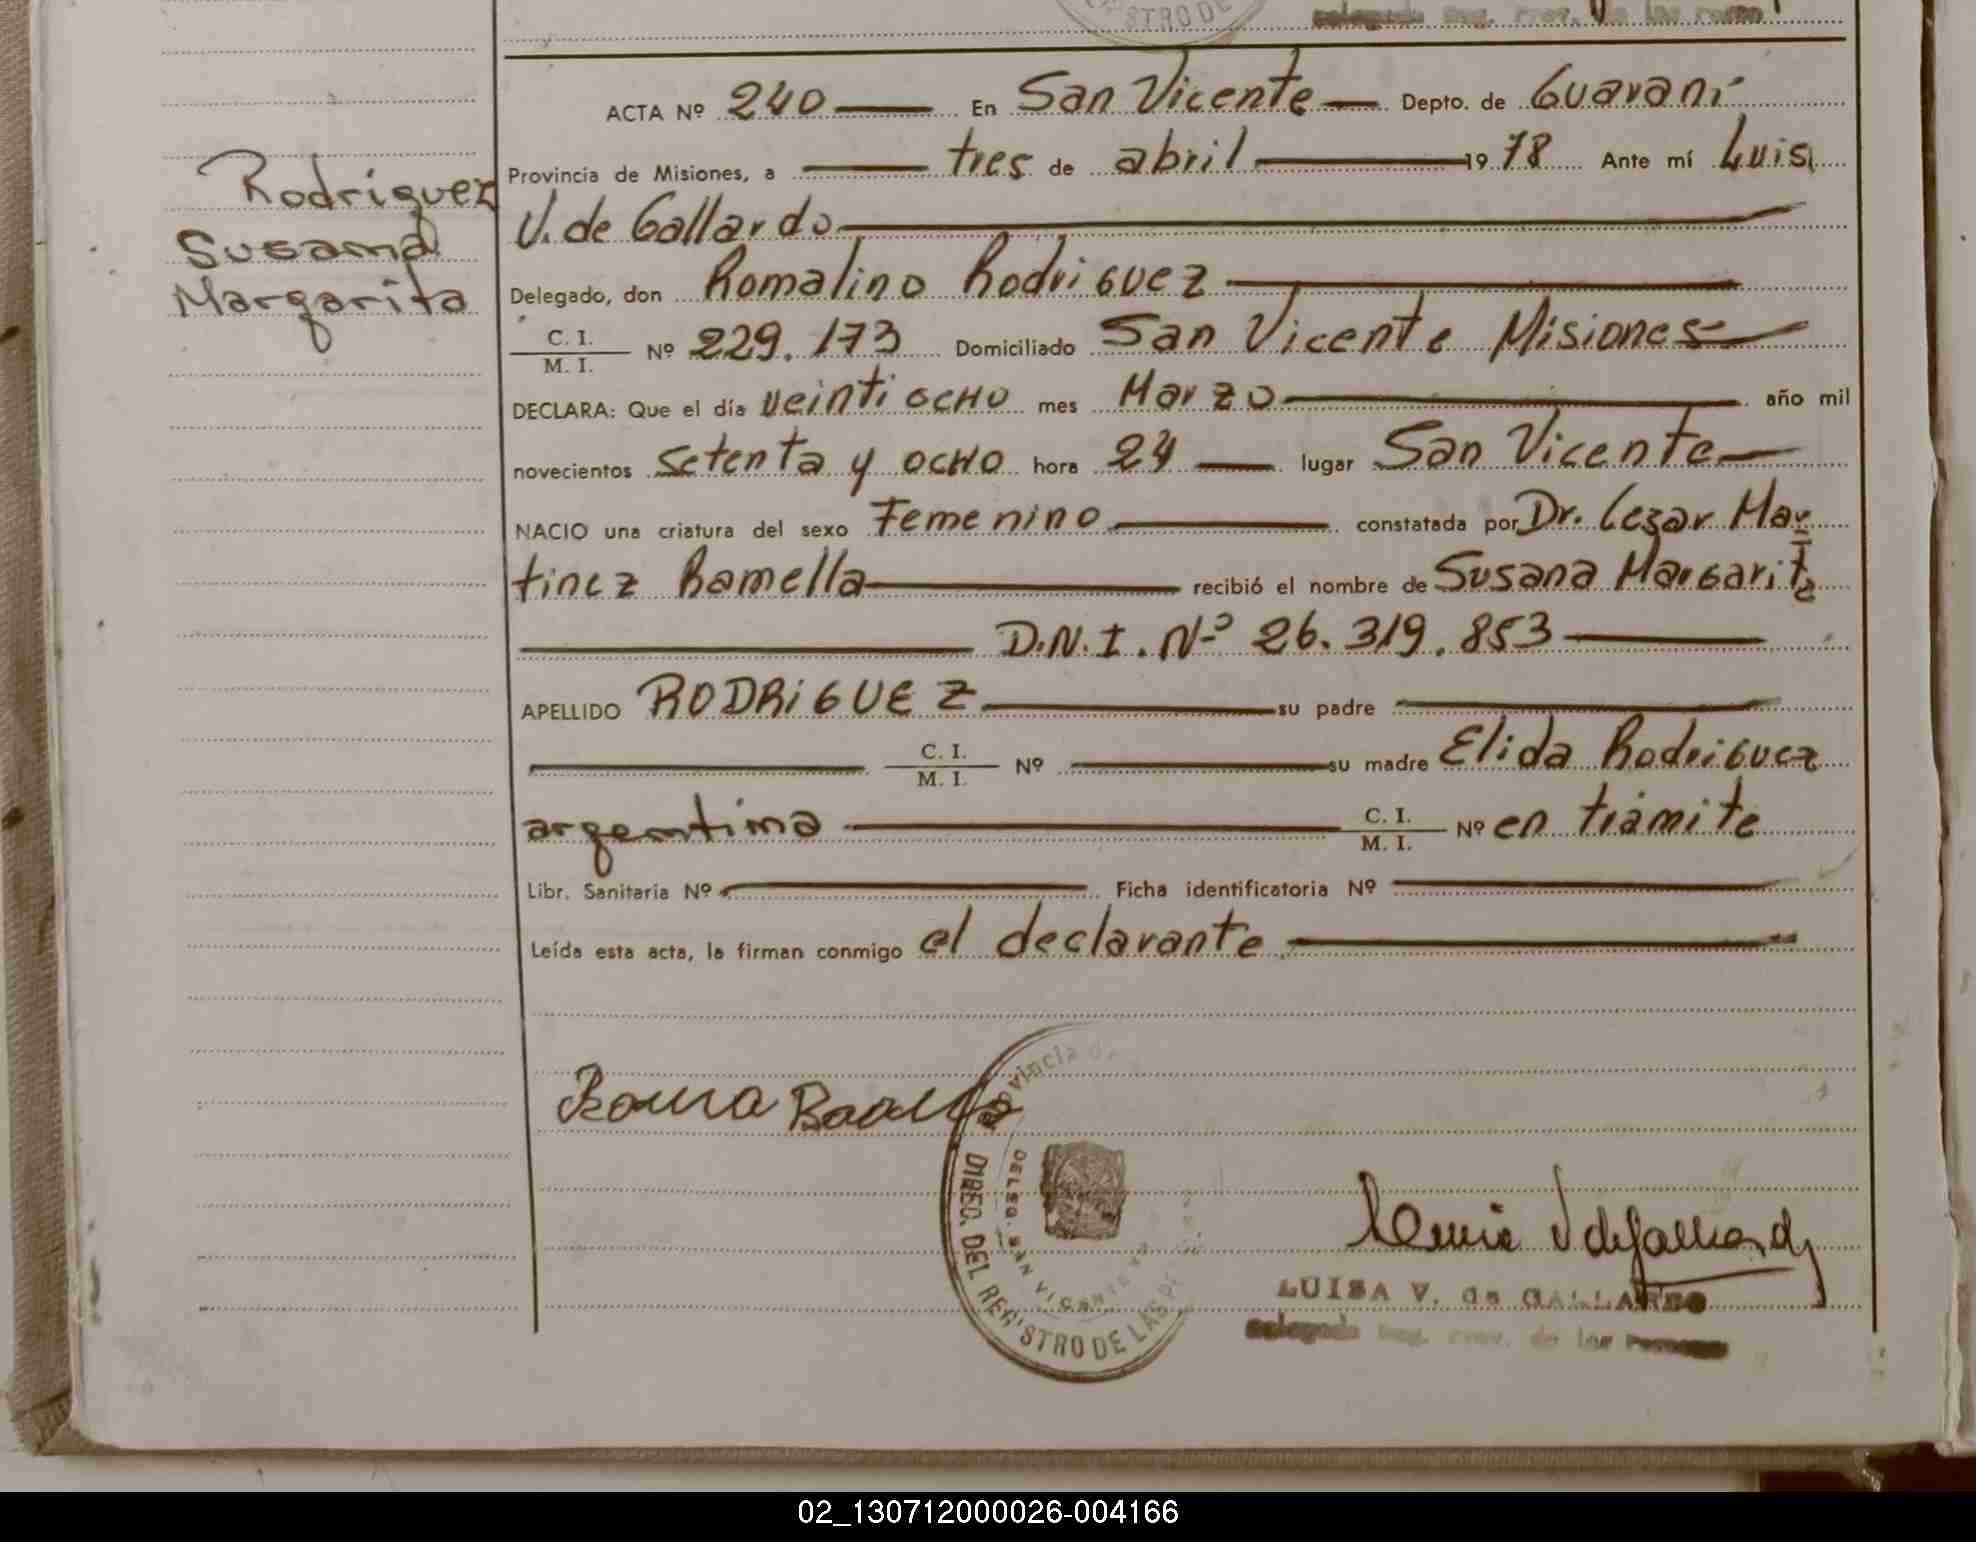 STRO DE
Delegado Reg. Prov. de las
Rodriguez
Susana
Margarita
ACTA Nº 240 — En San Vicente — Depto. de Guaraní
Provincia de Misiones, a — tres de abril — 19 78 Ante mí Luisa
V. de Gallardo —
Delegado, don Romalino Rodriguez —
C. I. / M. I. Nº 229.173 Domiciliado San Vicente Misiones —
DECLARA: Que el día veintiocho mes Marzo — año mil
novecientos setenta y ocho hora 24 — lugar San Vicente —
NACIO una criatura del sexo Femenino — constatada por Dr. Cezar Mar
tinez Ramella — recibió el nombre de Susana Margarita
— D.N.I. Nº 26.319.853 —
APELLIDO RODRIGUEZ — su padre —
— C. I. / M. I. Nº — su madre Elida Rodriguez
argentina — C. I. / M. I. Nº en trámite
Libr. Sanitaria Nº — Ficha identificatoria Nº —
Leída esta acta, la firman conmigo el declarante. —
Provincia de
DELEG. SAN VICENTE
DIREC. DEL REGISTRO DE LAS PE
LUISA V. de GALLARDO
Delegado Reg. Prov. de las Personas
02_130712000026-004166